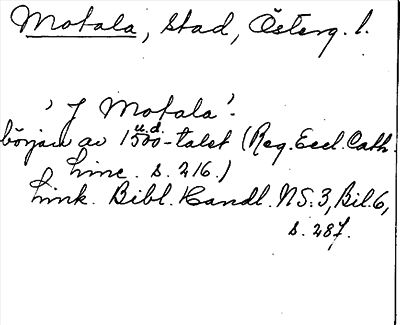 Motala, stad, Österg. l.
' J Motala'.
u.d.
början av 1500-talet (Reg. Eccl. Cath.
Linc. s. 216.)
Link. Bibl. Handl. N S: 3, Bil. 6,
s. 287.